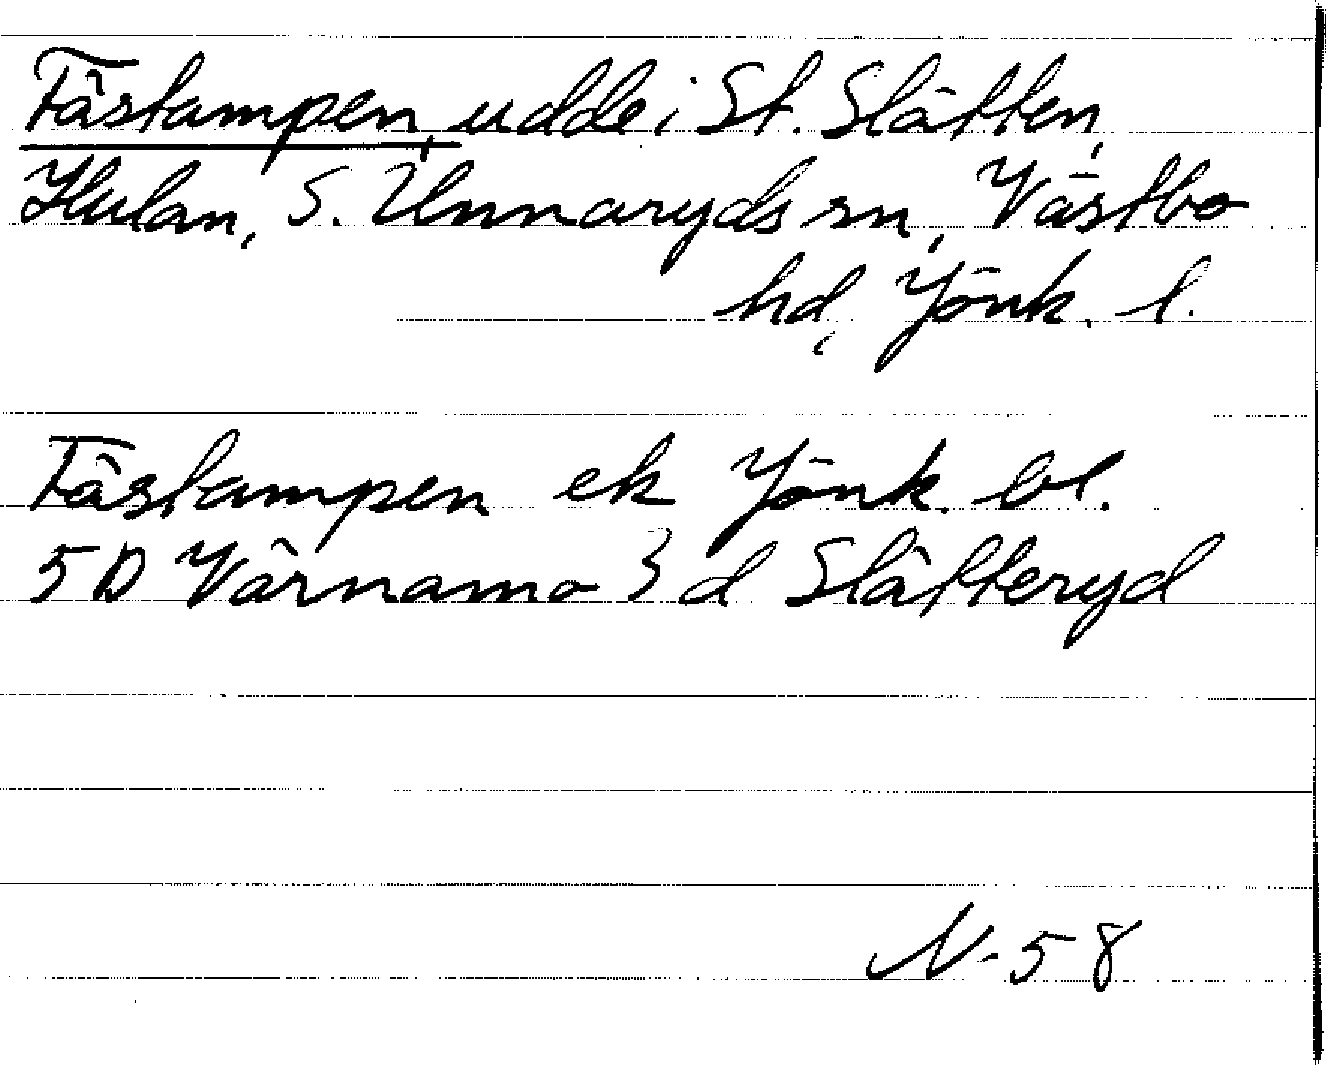 Fästampen, udde i St. Slätten,
Hulan, S. Unnaryds sn, Västbo
hd, Jönk. l.
Fästampen ek Jönk. bl.
5D Värnamo 3 d Slätteryd
N-58